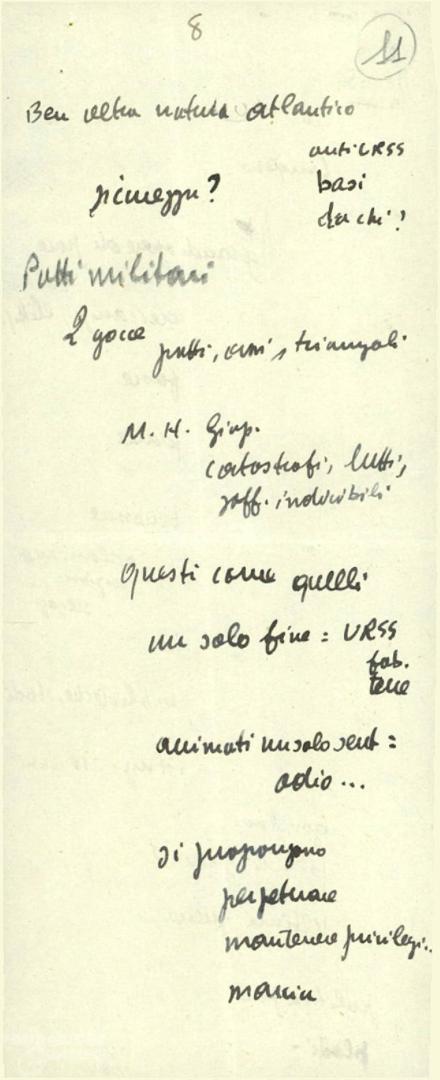 8
11
Ben altra natura atlantico
antiURSS
sicurezza? basi
da chi?
Patti militari
2 gocce
patti, armi, triangoli
M. H. Giap.
catastrofi, lutti,
soff. indicibili
Questi come quelli
un solo fine = URSS
fab.
terre
animati un solo sent =
odio...
si propongono
perpetuare
mantenere privilegi..